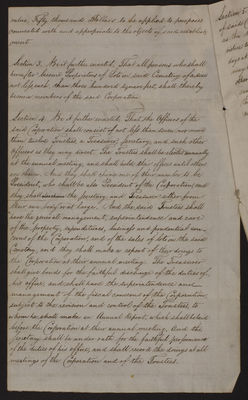 value, Fifty thousand dollars to be applied to purposes
connected with and appropriate to the objects of said establish
ment.
Section 3. Be it further enacted, That all persons who shall
hereafter become Proprietors of Lots in said Cemetery of a size
not less each than three hundred square feet, shall thereby
become members of the said Corporation
Section 4. Be it further enacted, That the Officers of the
said Corporation shall consist of not less than seven nor more
than twelve Trustees, a Treasurer, Secretary, and such other
officers as they may direct. The Trustees shall be elected annually
at the annual meeting, and shall hold their offices until others
are chosen. And they shall choose one of their number to be
President, who shall be also President of the Corporation, and
they shall also choose the Secretary and Treasurer either from
their own body or at large. And the said Trustees shall
have the general management, superintendence and care
of the property, expenditures, business and prudential con-
cerns of the Corporation, and of the sales of lots in the said
Cemetery, and they shall make a report of their doings to
the Corporation at their annual meeting. The Treasurer
shall give bonds for the faithful discharge of the duties of
his office, and shall have the superintendence and
management of the fiscal concerns of the Corporation
subject to the revision and control of the Trustees, to
whom he shall make an Annual Report, which shall be laid
before the Corporation at their annual meeting. And the
Secretary shall be under oath for the faithful performance
of the duties of his office, and shall record the doings at all
meetings of the Corporation and of the Trustees.
Section 5